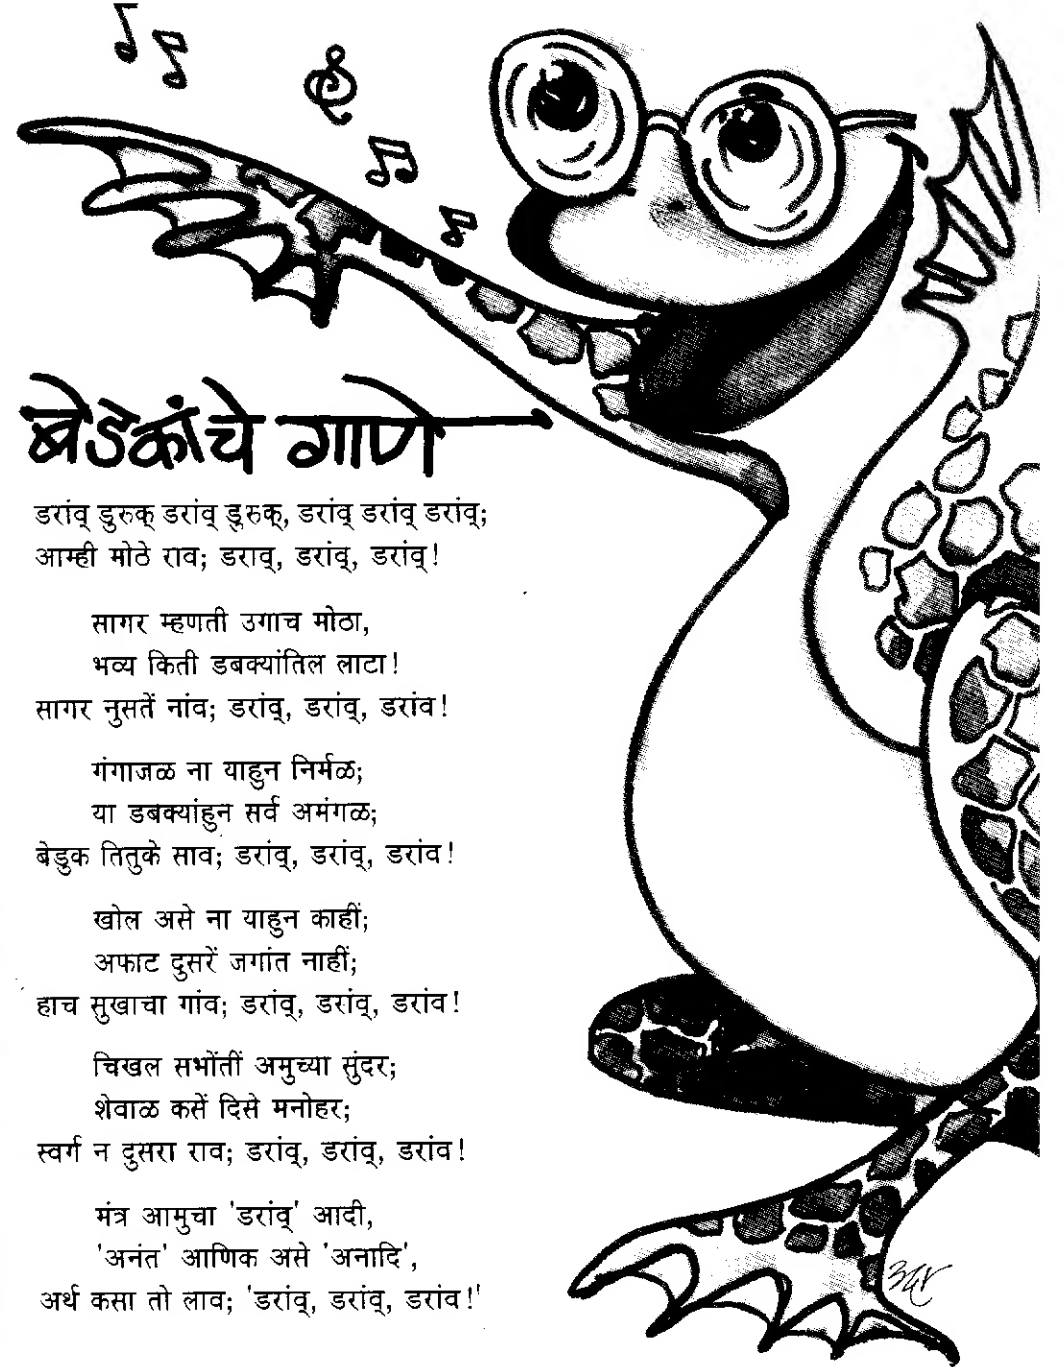 बेडकांचे गाणे
डरांव् डुरुक् डरांव् डुरुक्, डरांव् डरांव् डरांव्;
आम्ही मोठे राव; डराव्, डरांव्, डरांव्!
सागर म्हणती उगाच मोठा,
भव्य किती डबक्यांतिल लाटा!
सागर नुसतें नांव; डरांव्, डरांव्, डरांव!
गंगाजळ ना याहुन निर्मळ;
या डबक्यांहुन सर्व अमंगळ;
बेडुक तितुके साव; डरांव्, डरांव्, डरांव!
खोल असे ना याहुन काहीं;
अफाट दुसरें जगांत नाहीं;
हाच सुखाचा गांव; डरांव्, डरांव्, डरांव!
चिखल सभोंतीं अमुच्या सुंदर;
शेवाळ कसें दिसे मनोहर;
स्वर्ग न दुसरा राव; डरांव्, डरांव्, डरांव!
मंत्र आमुचा 'डरांव्' आदी,
'अनंत' आणिक असे 'अनादि',
अर्थ कसा तो लाव; 'डरांव्, डरांव्, डरांव!'